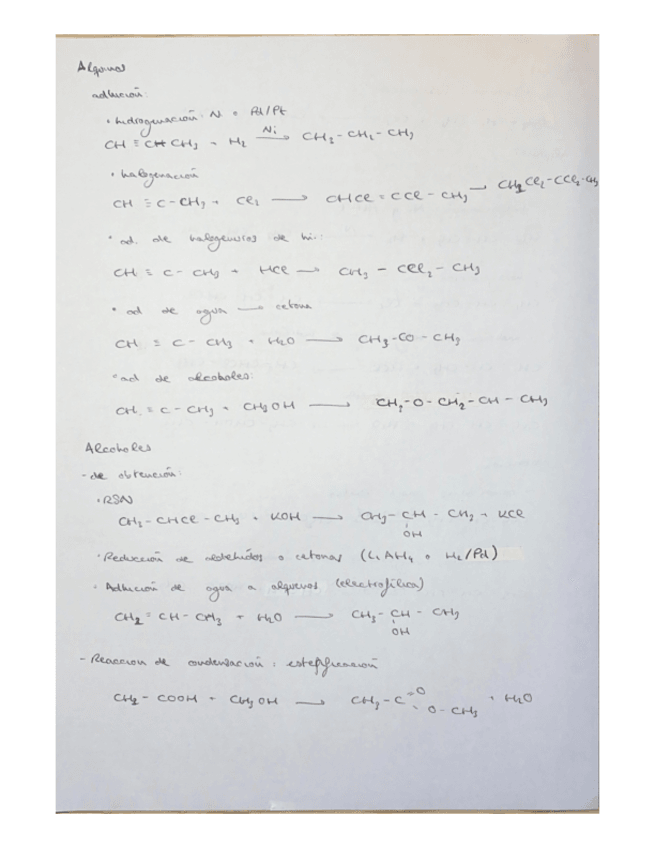 Alquinos
adhición:
· hidrogenación: Ni o Pd/Pt
CH ≡ CH CH3 + H2 —Ni→ CH3 - CH2 - CH3
· halogenación
CH ≡ C - CH3 + Cl2 ⟶ CHCl = CCl - CH3 → CH2Cl2 - CCl2 - CH3
· ad. de halogenuros de hi.:
CH ≡ C - CH3 + HCl ⟶ CH3 - CCl2 - CH3
· ad de agua ⟶ cetona
CH ≡ C - CH3 + H2O ⟶ CH3 - CO - CH3
· ad de alcoholes:
CH ≡ C - CH3 + CH3OH ⟶ CH3 - O - CH2 - CH - CH3
Alcoholes
- de obtención:
· RSN
CH3 - CHCl - CH3 + KOH ⟶ CH3 - CH - CH3 + KCl
OH
· Reducción de aldehídos o cetonas (LiAH4 o H2/Pd)
· Adhición de agua a alquenos (electrofílica)
CH2 = CH - CH3 + H2O ⟶ CH3 - CH - CH3
OH
- Reacción de condensación: esterificación
CH3 - COOH + CH3OH ⟶ CH3 - C =O + H2O
- O - CH3